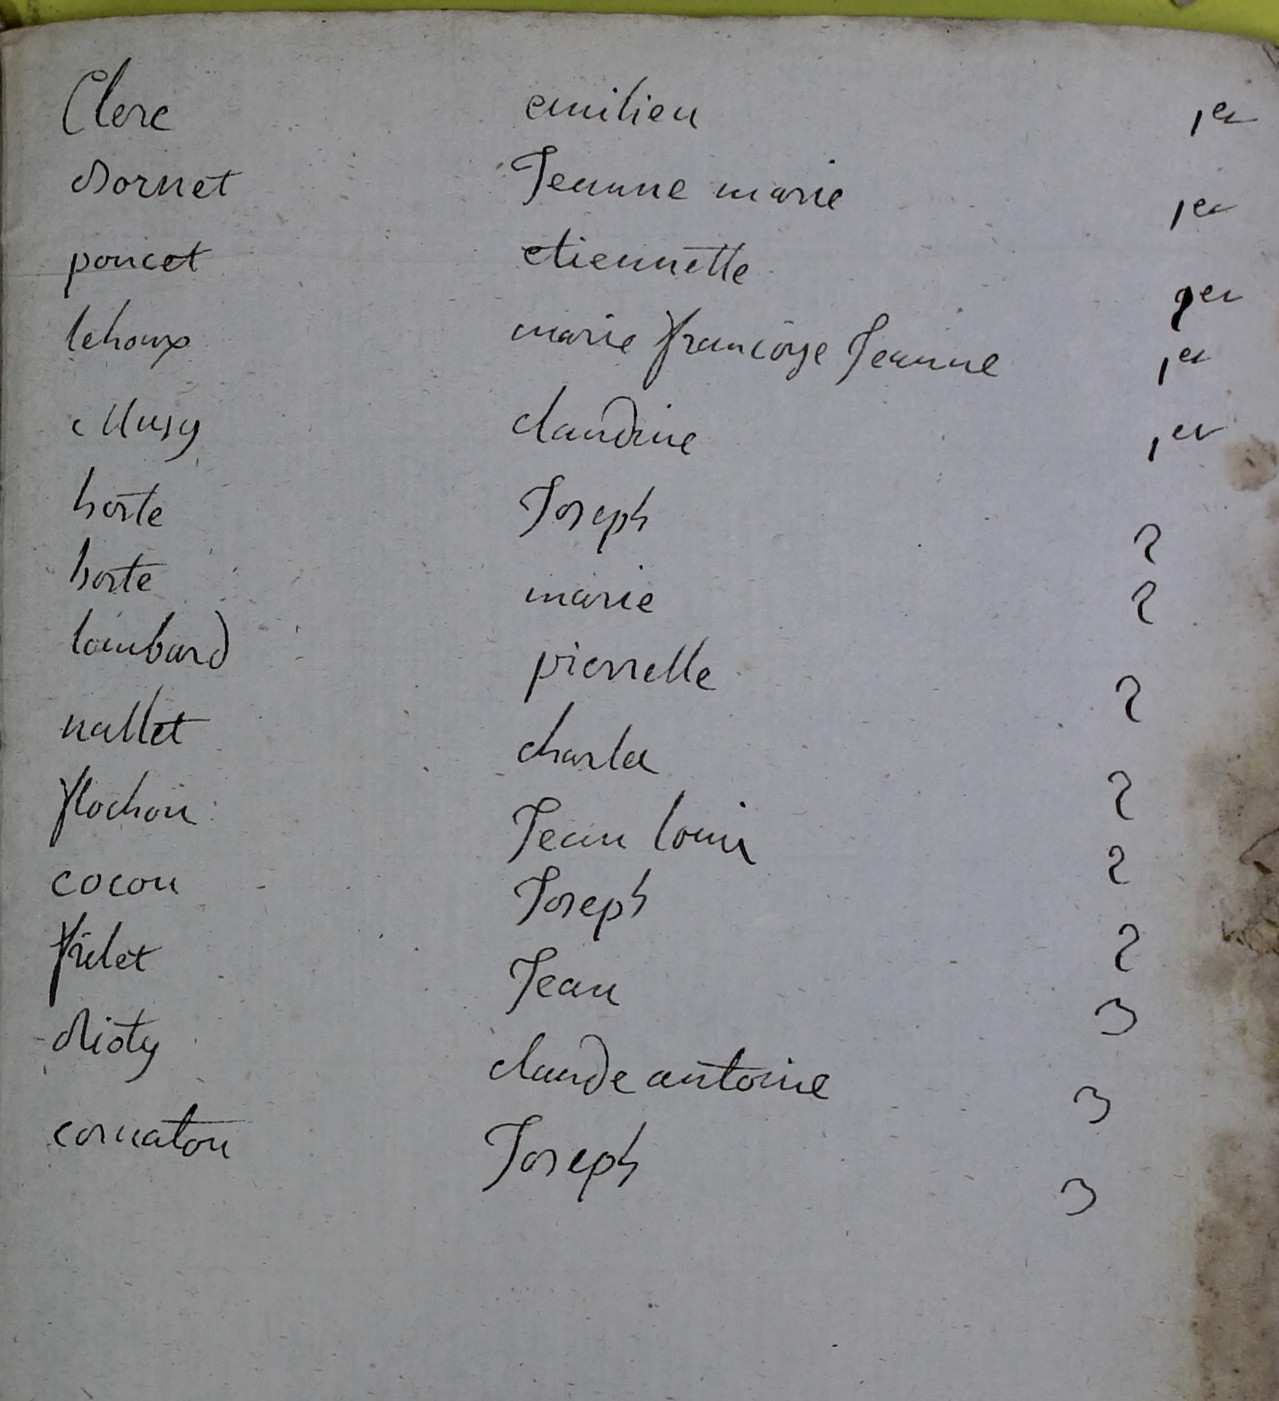 Clerc emilien 1er
Dornet Jeanne marie 1er
poncet etiennette 1er
lehoux marie francoise Jeanne 1er
Musy claudine 1er
borte Joseph 2
borte marie 2
lombard pierrette 2
nallet charle 2
flochon Jean louis 2
cocon Joseph 2
frilet Jean 3
Mioty claude antoine 3
cornaton Joseph 3